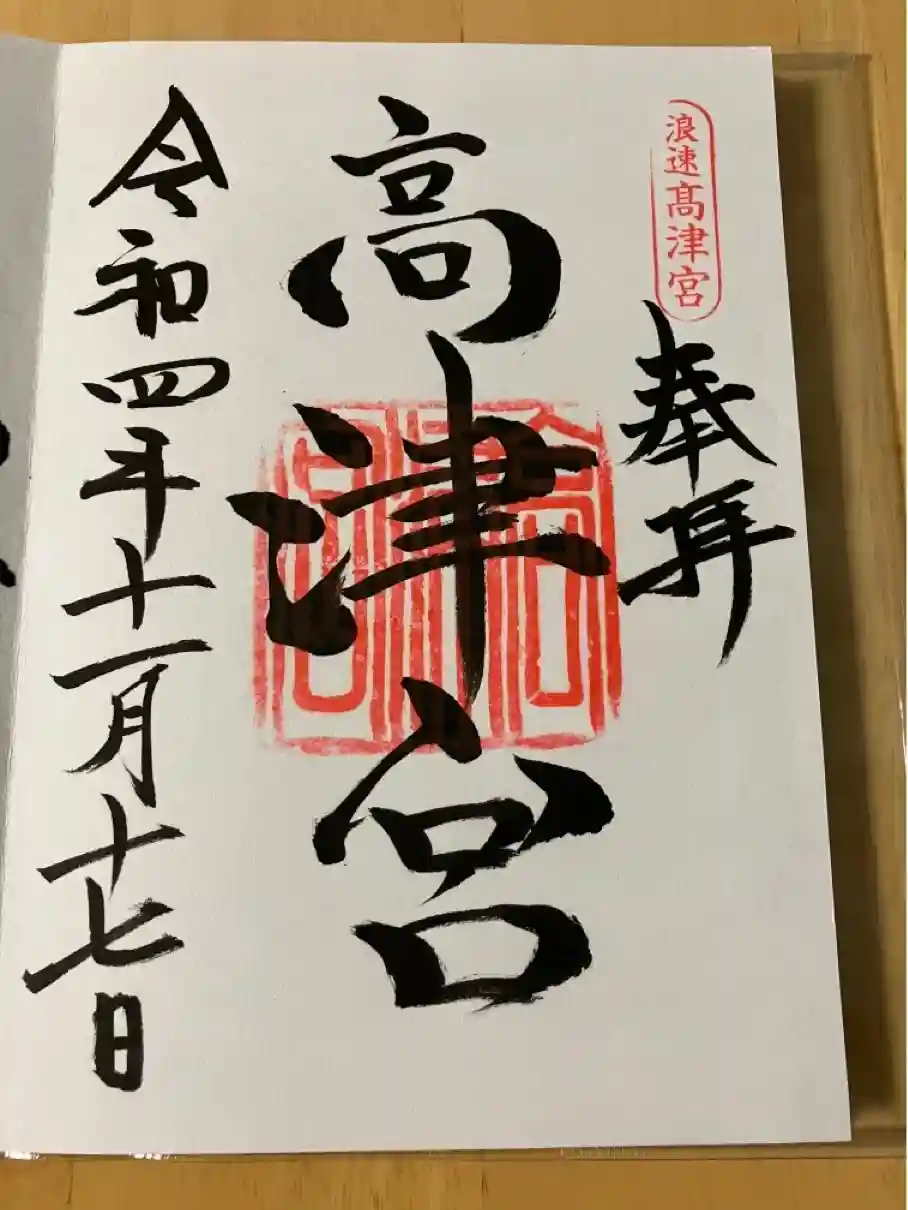 浪速髙津宮
奉拝
高津宮
令和四年十一月十七日